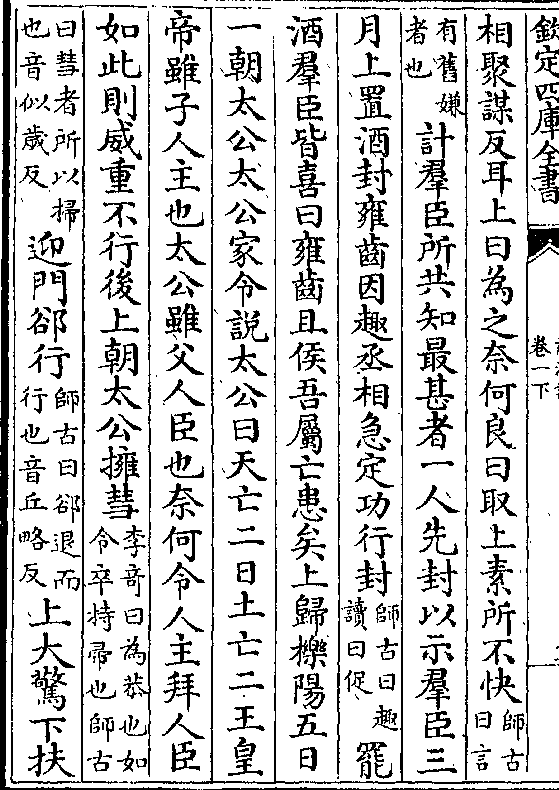 欽定四庫全書
卷一下
相聚謀反耳上曰為之奈何良曰取上素所不快師古曰言
有舊嫌者也計羣臣所共知最甚者一人先封以示羣臣三
月上置酒封雍齒因趣丞相急定功行封師古曰趣讀曰促罷
酒羣臣皆喜曰雍齒且侯吾屬亡患矣上歸櫟陽五日
一朝太公太公家令說太公曰天亡二日土亡二王皇
帝雖子人主也太公雖父人臣也奈何令人主拜人臣
如此則威重不行後上朝太公擁彗李竒曰為恭也如令卒持帚也師古
曰彗者所以掃也音似歲反迎門郤行師古曰郤退而行也音丘略反上大驚下扶